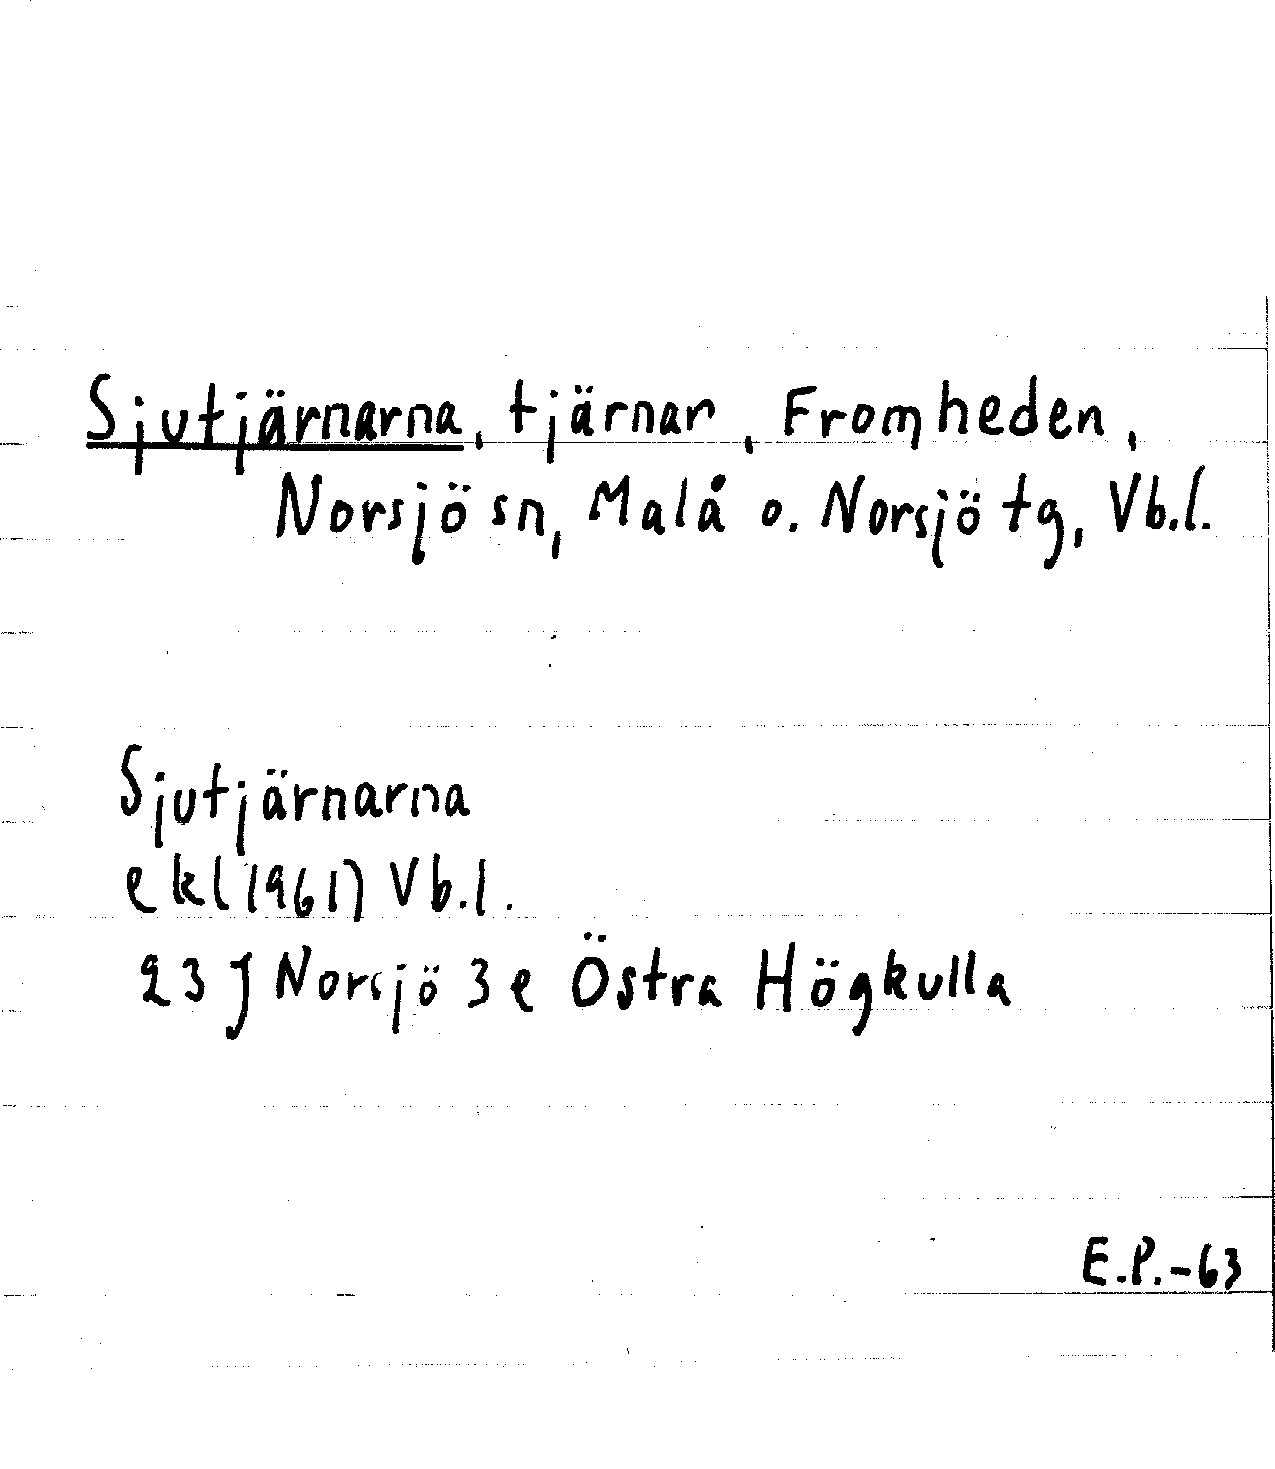 Sjutjärnarna, tjärnar, Fromheden,
Norsjö sn, Malå o. Norsjö tg, Vb.l.
Sjutjärnarna
ekl (1961) Vb.l.
23 J Norsjö 3 e Östra Högkulla
E.P.-63